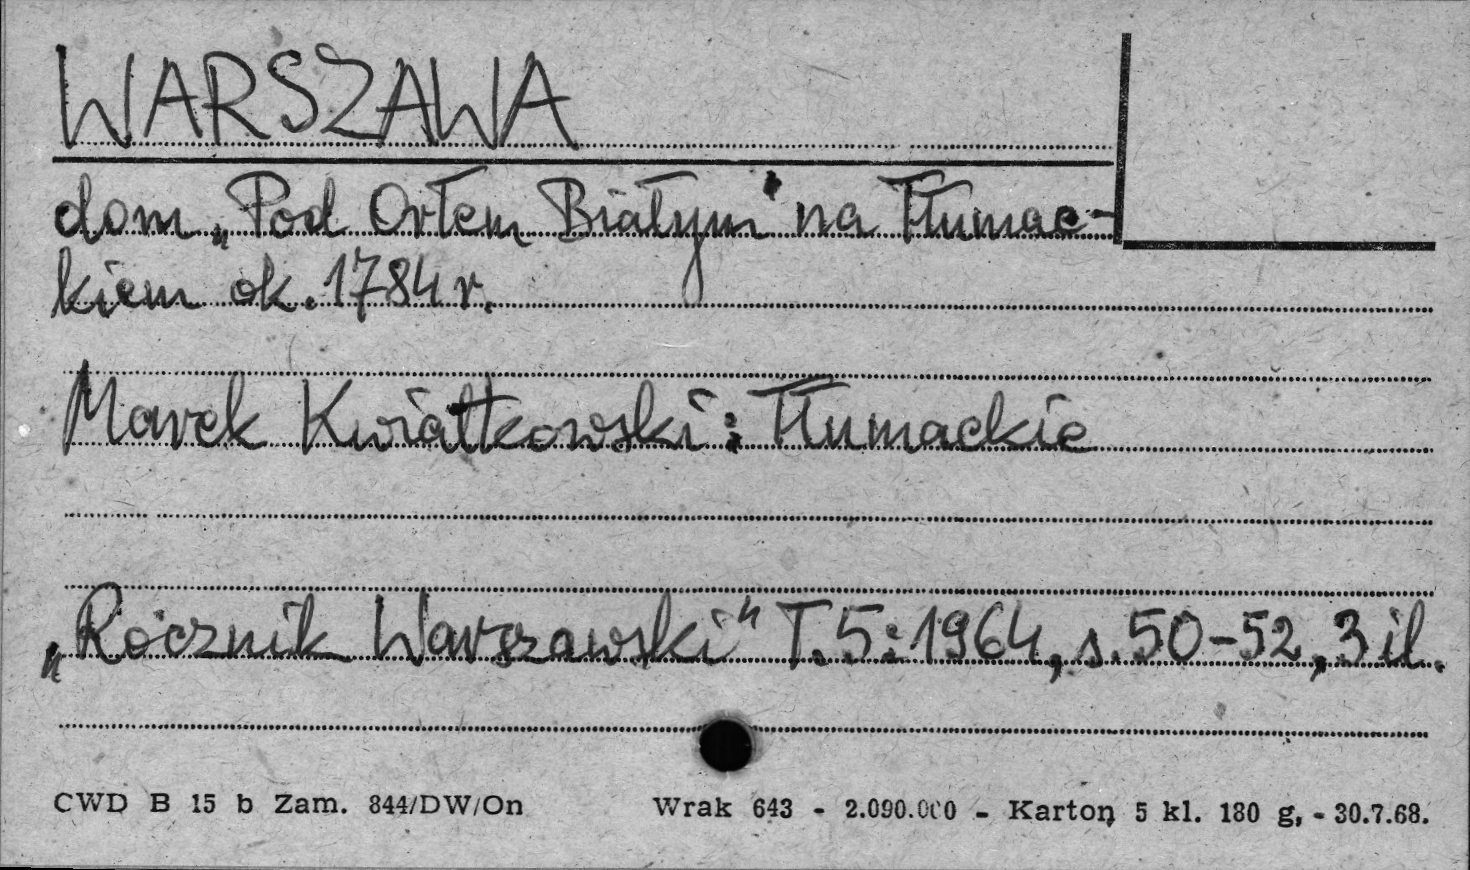 WARSZAWA
dom „Pod Orłem Białym" na Tłumac-
kiem ok. 1784 r.
Marek Kwiatkowski: Tłumackie
„Rocznik Warszawski" T. 5: 1964, s. 50-52, 3 il.
CWD B 15 b Zam. 844/DW/On Wrak 643 - 2.090.000 - Karton 5 kl. 180 g, - 30.7.68.